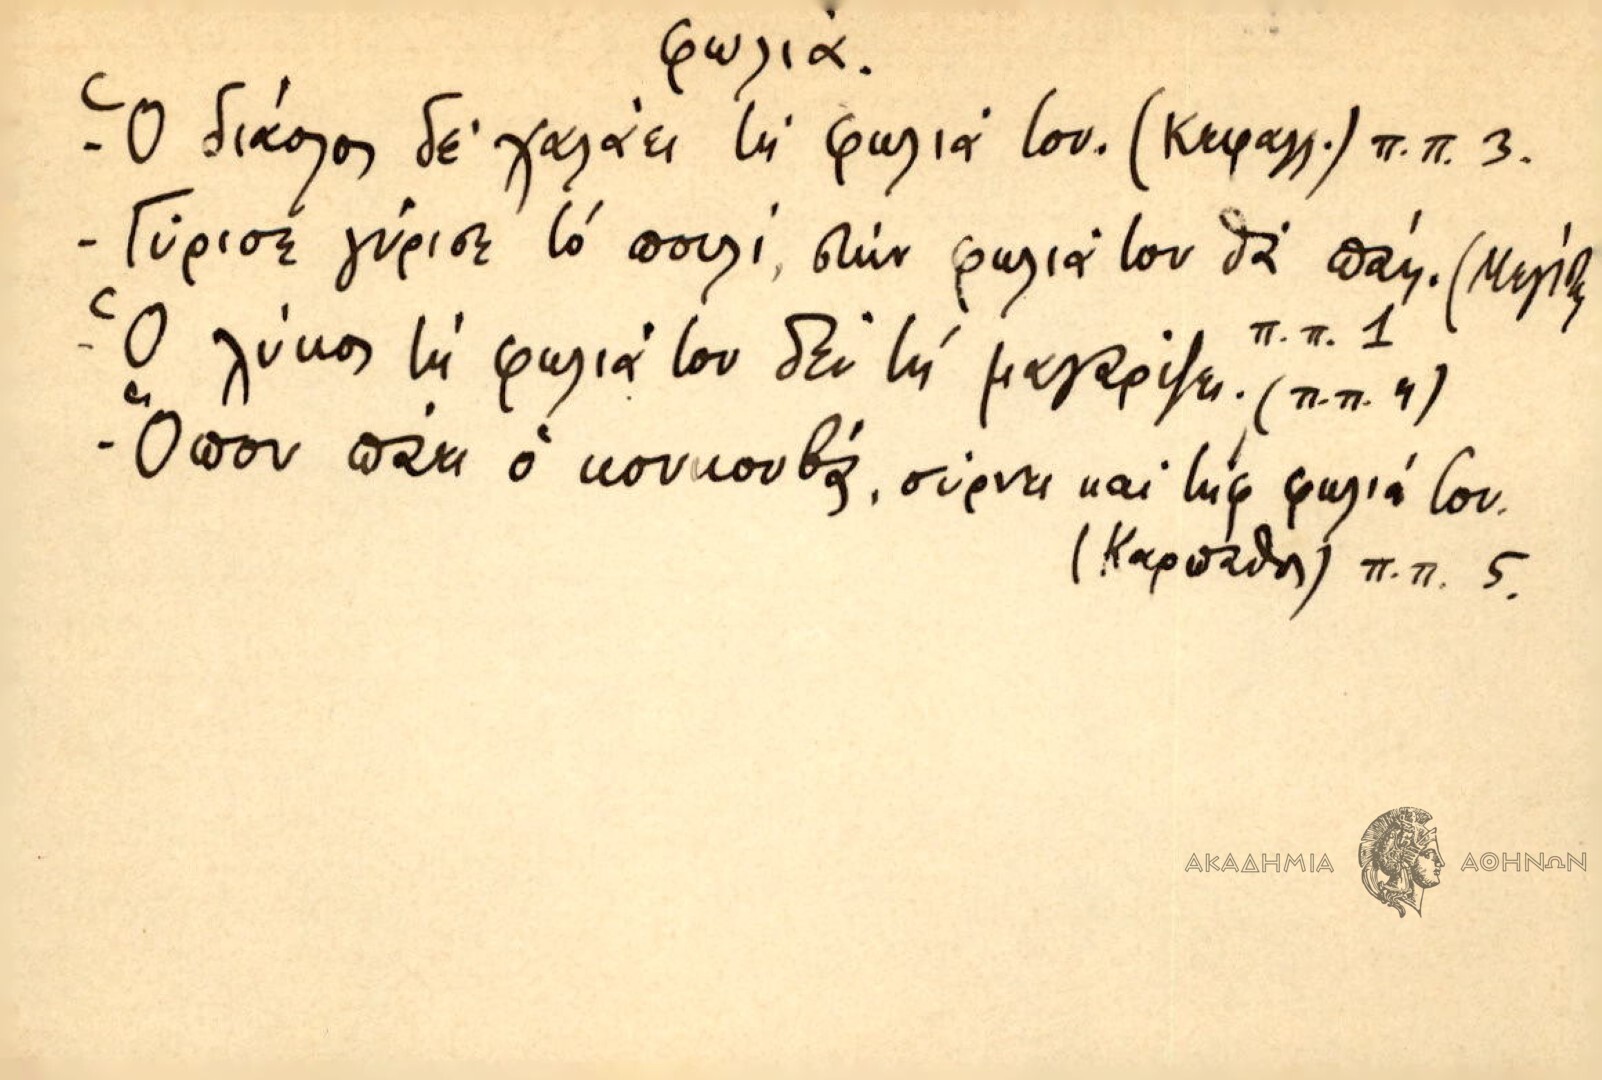 φωλιά.
- Ὁ διάολος δέ χαλάει τή φωλιά του. (Κεφαλλ.) π.π. 3.
- Γύρισε γύρισε τό πουλί, στήν φωλιά του θά πάη.
- Ὁ λύκος τή φωλιά του δέν τή μαγαρίζει. π.π. 1
(π.π. 4)
- Ὅπου πάει ὁ κουκουβᾶς, σύρνει καί τήφ φωλιά του.
(Κάρπαθος) π.π. 5.
ΑΚΑΔΗΜΙΑ ΑΘΗΝΩΝ